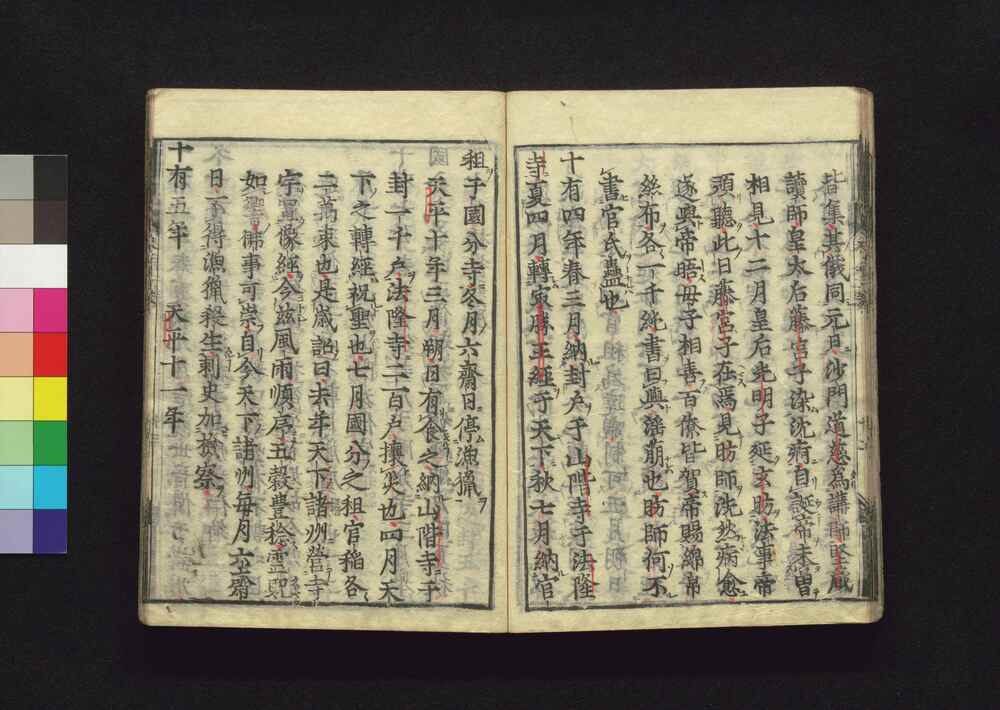 皆集其儀同元旦沙門道慈為講師堅蔵
讀師皇太后藤宮子染沈痾自誕帝未曽
相見十二月皇后光明子延玄昉法事帝
頭聽此日藤宮子在焉見昉師洸然病愈
遂與帝晤母子相喜百僚皆賀帝賜綿帛
絲布各一千純書曰與滛崩也昉師何不
書官氏蠱也
十有四年春三月納封户于山階寺于法隆
寺夏四月轉寂勝王經于天下秋七月納官
租于國分寺冬月六齋日停漁獵
天平十年三月朔日有食之納山階寺千
封一千户法隆寺二百户攘災也四月天
下之轉經祝聖也七月國分之租官稲各
二萬束也是歳詔曰去年天下諸州營寺
宇置像經今兹風雨順序五穀豊稔霊
如響佛事可崇自今天下諸州毎月六齋
日不得漁獵殺生刺史加撿察
十有五年 天平十一年